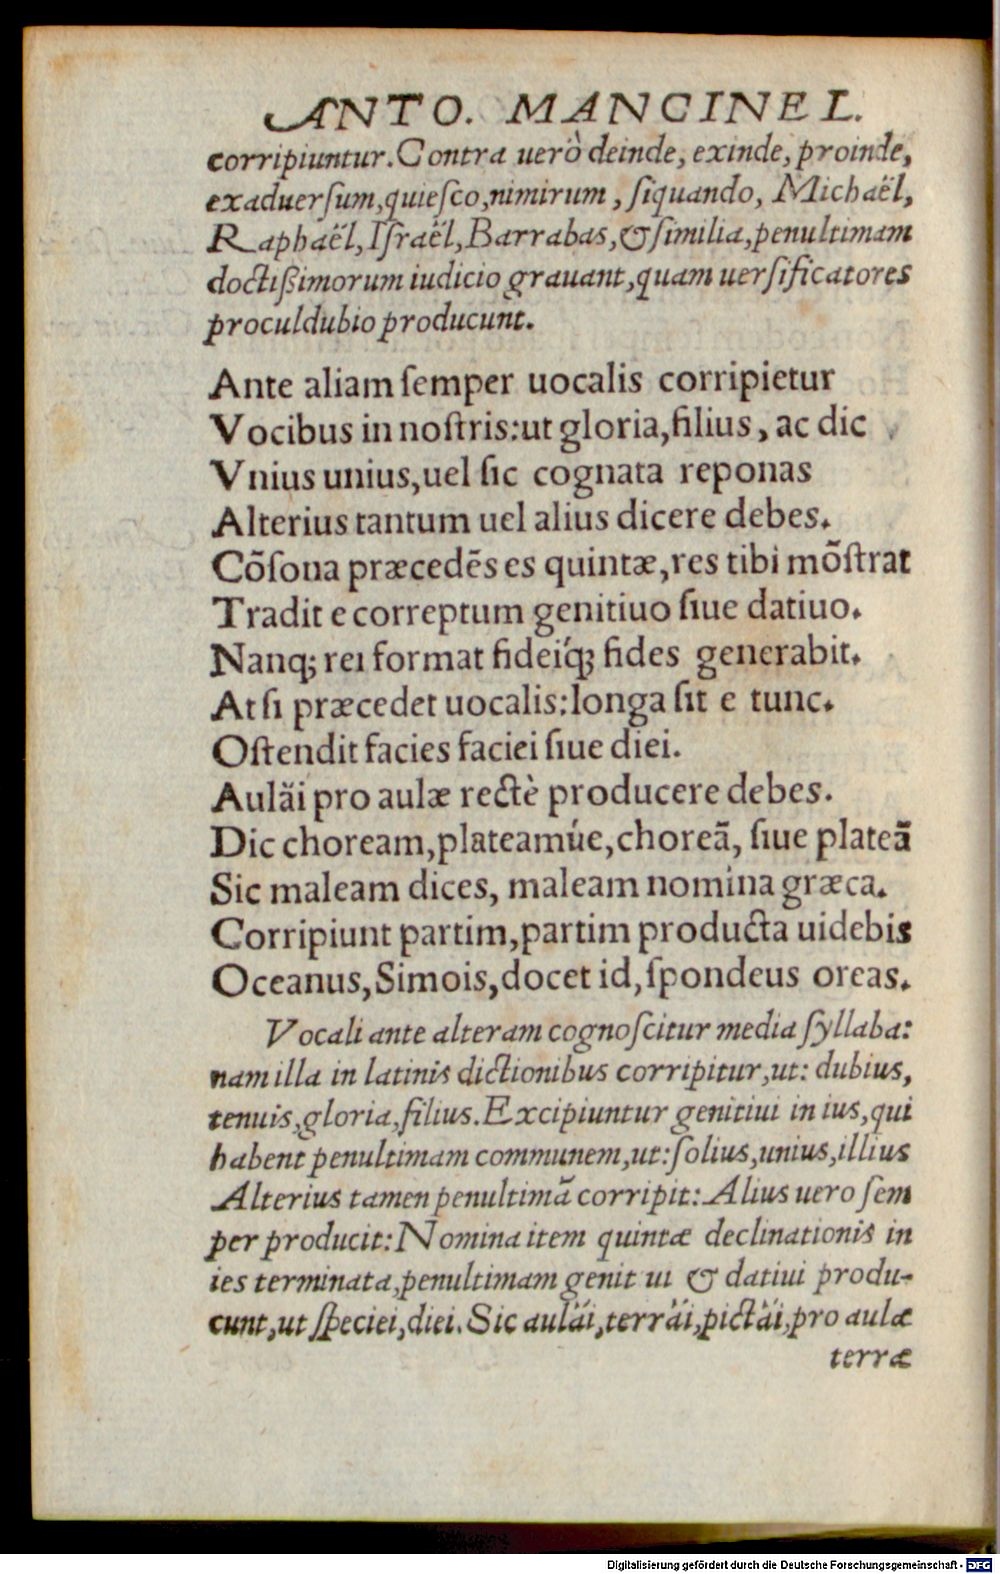 ANTO. MANCINEL.
corripiuntur. Contra uerò deinde, exinde, proinde,
exaduerſum, quieſco, nimirum, ſiquando, Michaël,
Raphaël, Iſraël, Barrabas, & ſimilia, penultimam
doctißimorum iudicio grauant, quam uerſificatores
proculdubio producunt.
Ante aliam ſemper uocalis corripietur
Vocibus in noſtris: ut gloria, filius, ac dic
Vnius unius, uel ſic cognata reponas
Alterius tantum uel alius dicere debes.
Cõſona præcedẽs es quintæ, res tibi mõſtrat
Tradit e correptum genitiuo ſiue datiuo.
Nanq; rei format fideiq́; fides generabit.
At ſi præcedet uocalis: longa ſit e tunc.
Oſtendit facies faciei ſiue diei.
Aulăi pro aulæ rectè producere debes.
Dic choream, plateamúe, choreã, ſiue plateã
Sic maleam dices, maleam nomina græca.
Corripiunt partim, partim producta uidebis
Oceanus, Simois, docet id, ſpondeus oreas.
Vocali ante alteram cognoſcitur media ſyllaba:
nam illa in latinis dictionibus corripitur, ut: dubius,
tenuis, gloria, filius. Excipiuntur genitiui in ius, qui
habent penultimam communem, ut: ſolius, unius, illius
Alterius tamen penultimã corripit: Alius uero ſem
per producit: Nomina item quintæ declinationis in
ies terminata, penultimam genit ui & datiui produ-
cunt, ut ſpeciei, diei. Sic aulăi, terrăi, pictăi, pro aulæ
terræ
Digitalisierung gefördert durch die Deutsche Forschungsgemeinschaft - DFG